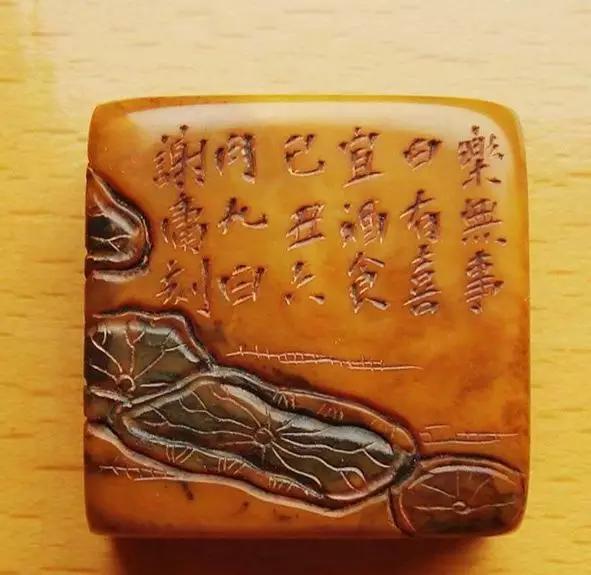 樂無事
日有喜
宜酒食
己丑六
月九日
謝庸刻